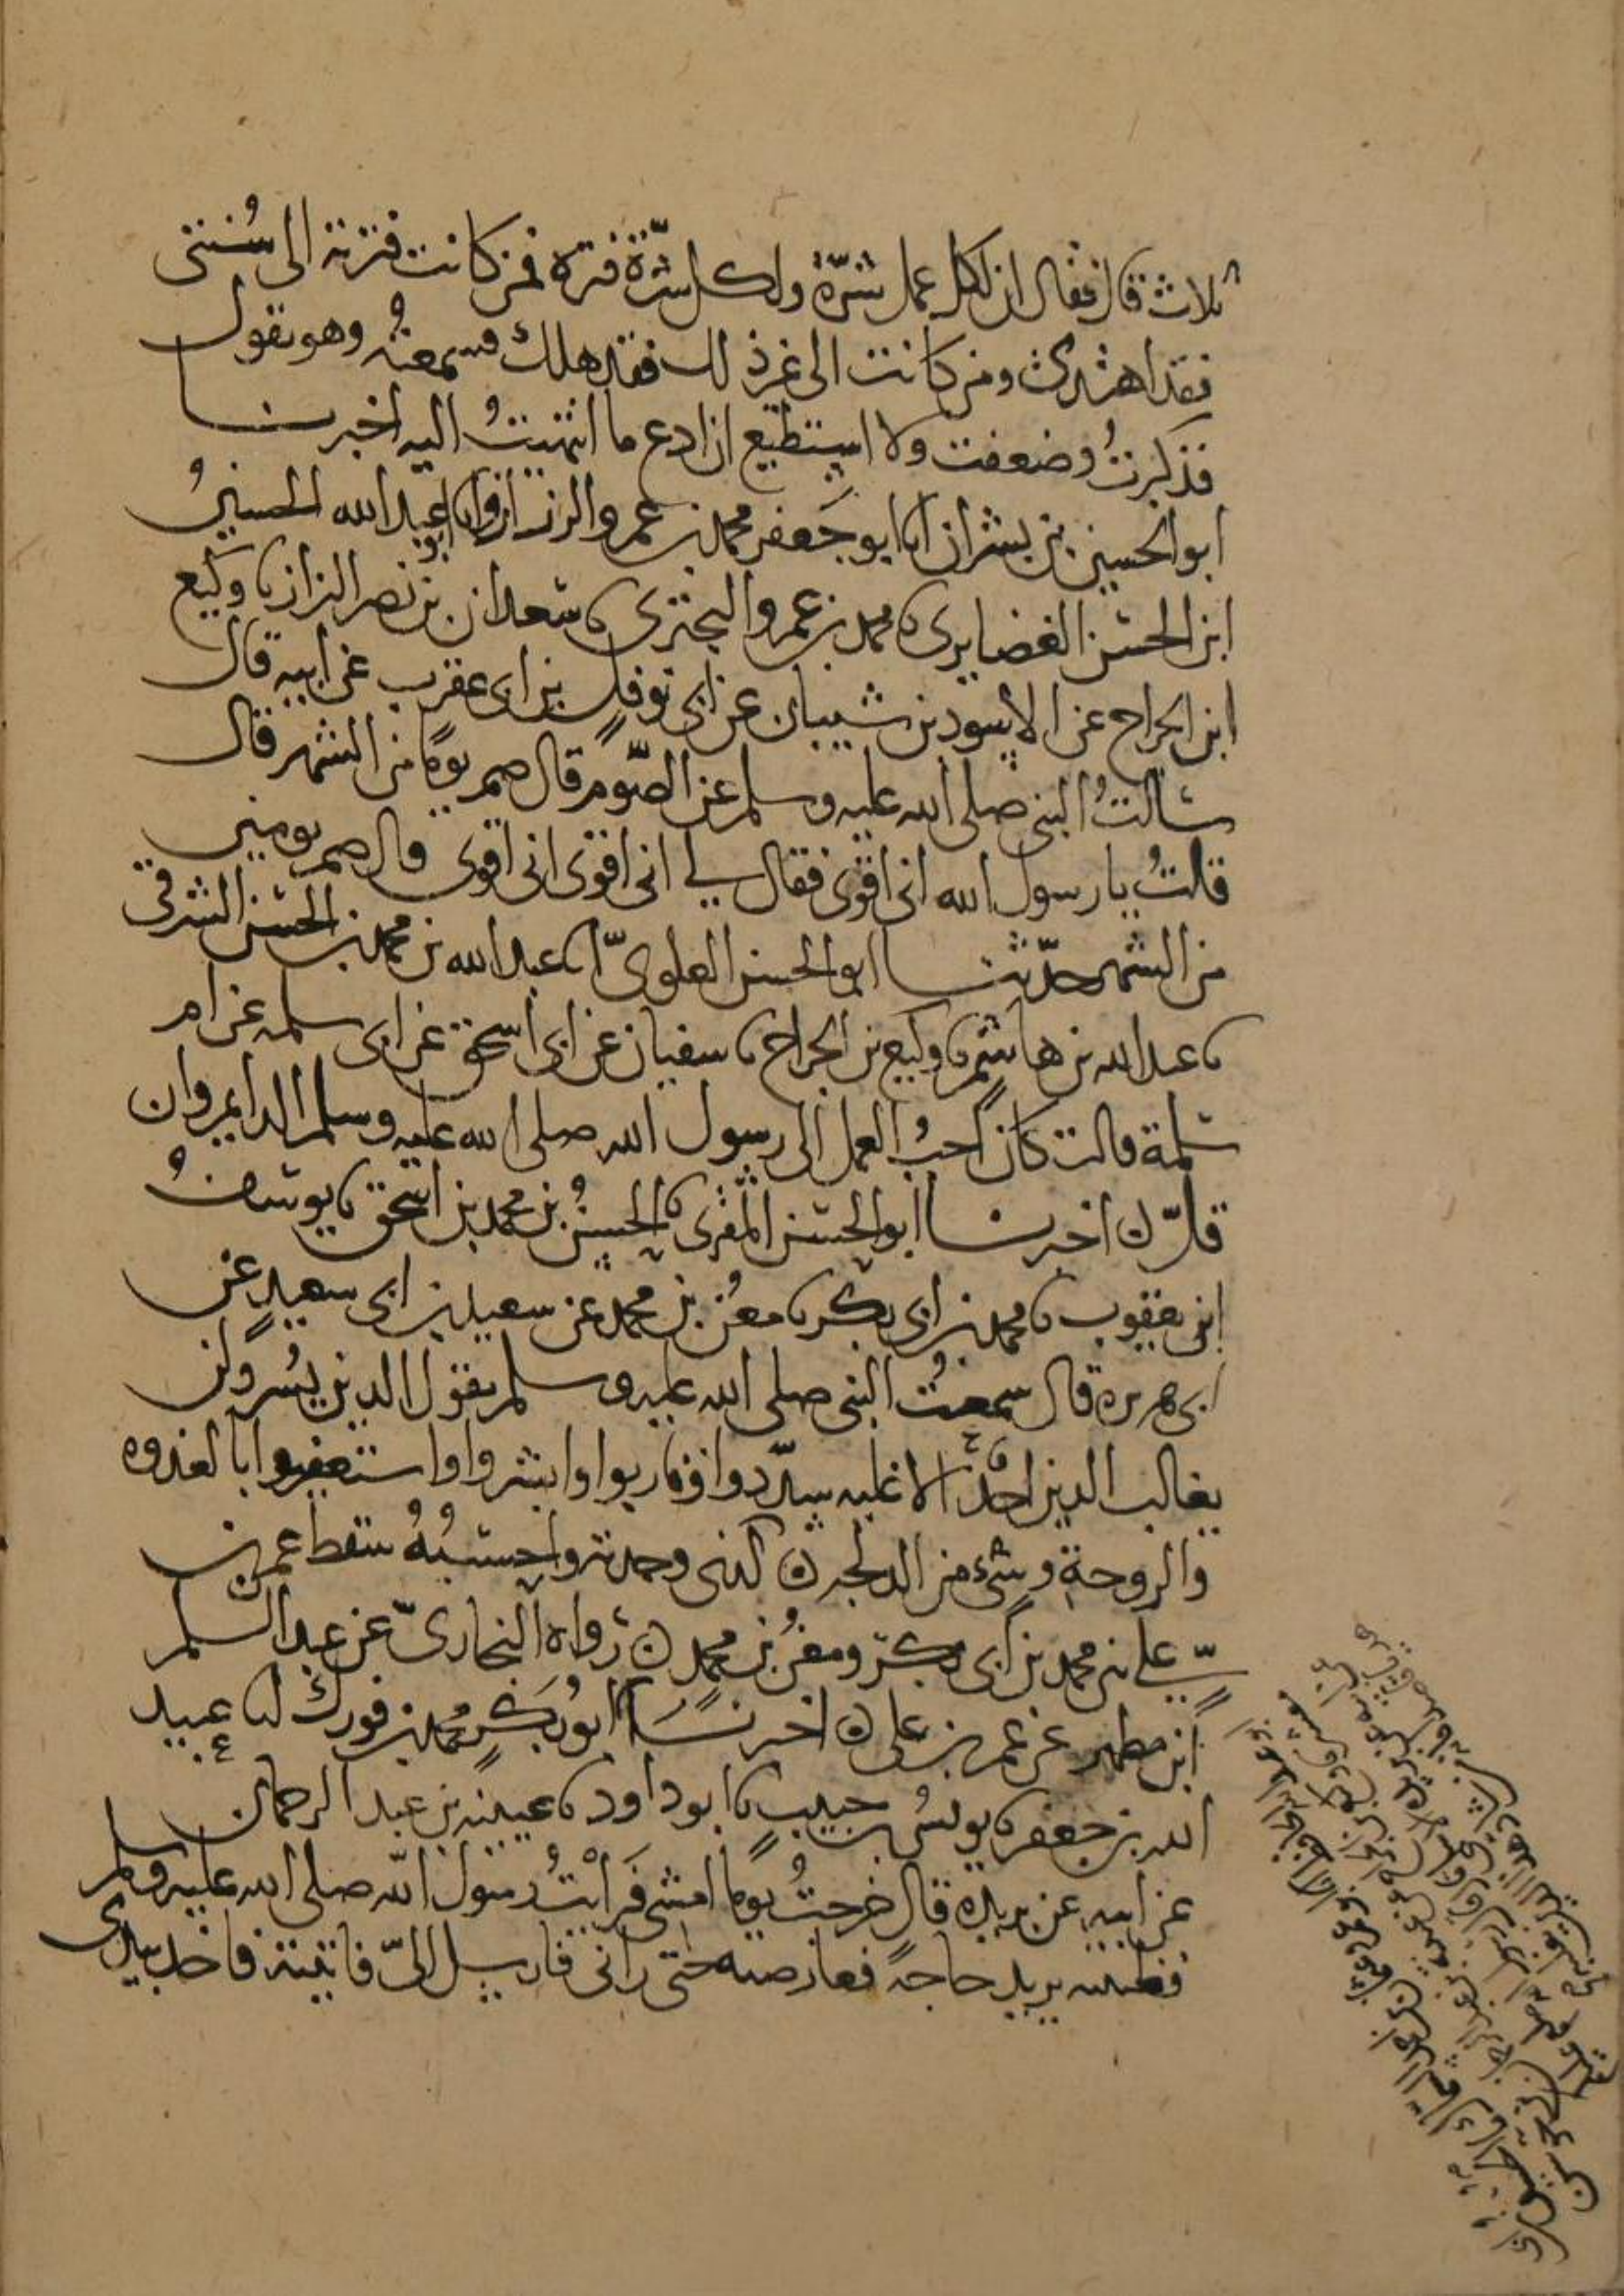 ثلاث قال فقال ان لكل عمل شرّة ولكل شرّة فترة فمن كانت فترته الى سُنتى
فقد اهتدى ومن كانت الى غير ذلك فقد هلك فسمعتُه وهو يقول
فذكرتُ وضعفت ولا استطيع ان ادع ما انتهيتُ اليه اخبرنا
ابو الحسين بن بشران انا ابو جَعفر محمد بن عمرو الرزاز وانا ابو عبد الله الحسينُ
ابن الحسن الغضايرى نا محمد بن عمرو البخترى نا سعدان بن نصر البزاز نا وكيع
ابن الجراح عن الاسود بن شيبان عن ابى نوفل بن ابى عقرب عن ابيه قال
سالتُ النبى صلى الله عليه وسلم عن الصّوم قال صم يومًا من الشهر قال
قلتُ يا رسول الله انى اقوى فقال لي انى اقوى انى اقوى قال صم يومين
من الشهر حدّثنا ابو الحسن العلوىّ انا عبد الله بن محمد بن الحسن الشرقى
نا عبد الله بن هاشم نا وكيع بن الجراح نا سفيان عن ابى اسحق عن ابى سلمه عن ام
سلمة قالت كان احبُّ العمل الى رسول الله صلى الله عليه وسلم الدايم وان
قلّ ن اخبرنا ابو الحسن المقرى نا الحسنُ بن محمد بن اسحق نا يوسفُ
ابن يعقوب نا محمد بن ابى بكر نا معن بن محمد عن سعيد بن ابى سعيدٍ عن
ابى هريرة قال سمعتُ النبى صلى الله عليه وسلم يقول الدين يُسر ولن
يغالب الدين احدٌ الا غلبه سدّدوا وقاربوا وابشروا واستعينوا بالغدوه
والروحة وشىء من الدلجه ن كذى وجدته واحسبُهُ سقط عمر بن
علي بن محمد بن ابى بكر ومعن بن محمد ن رواه البخارىّ عن عبد السلم
ابن مطهر عن عمر بن على ن اخبرنَا ابُو بَكرٍ محمد بن فورك انا عبيد
الله بن جعفر نا يونسُ بن حبيب نا ابو داود نا عيينه بن عبد الرحمان
عن ابيه عن بريدة قال خرجتُ يومًا امشى فَرَايْتُ رسول الله صلى الله عليه وسلم
فظننته يريد حاجةً فعارضته حتى رانى فارسل الىّ فاتيته فاخذ بيدى